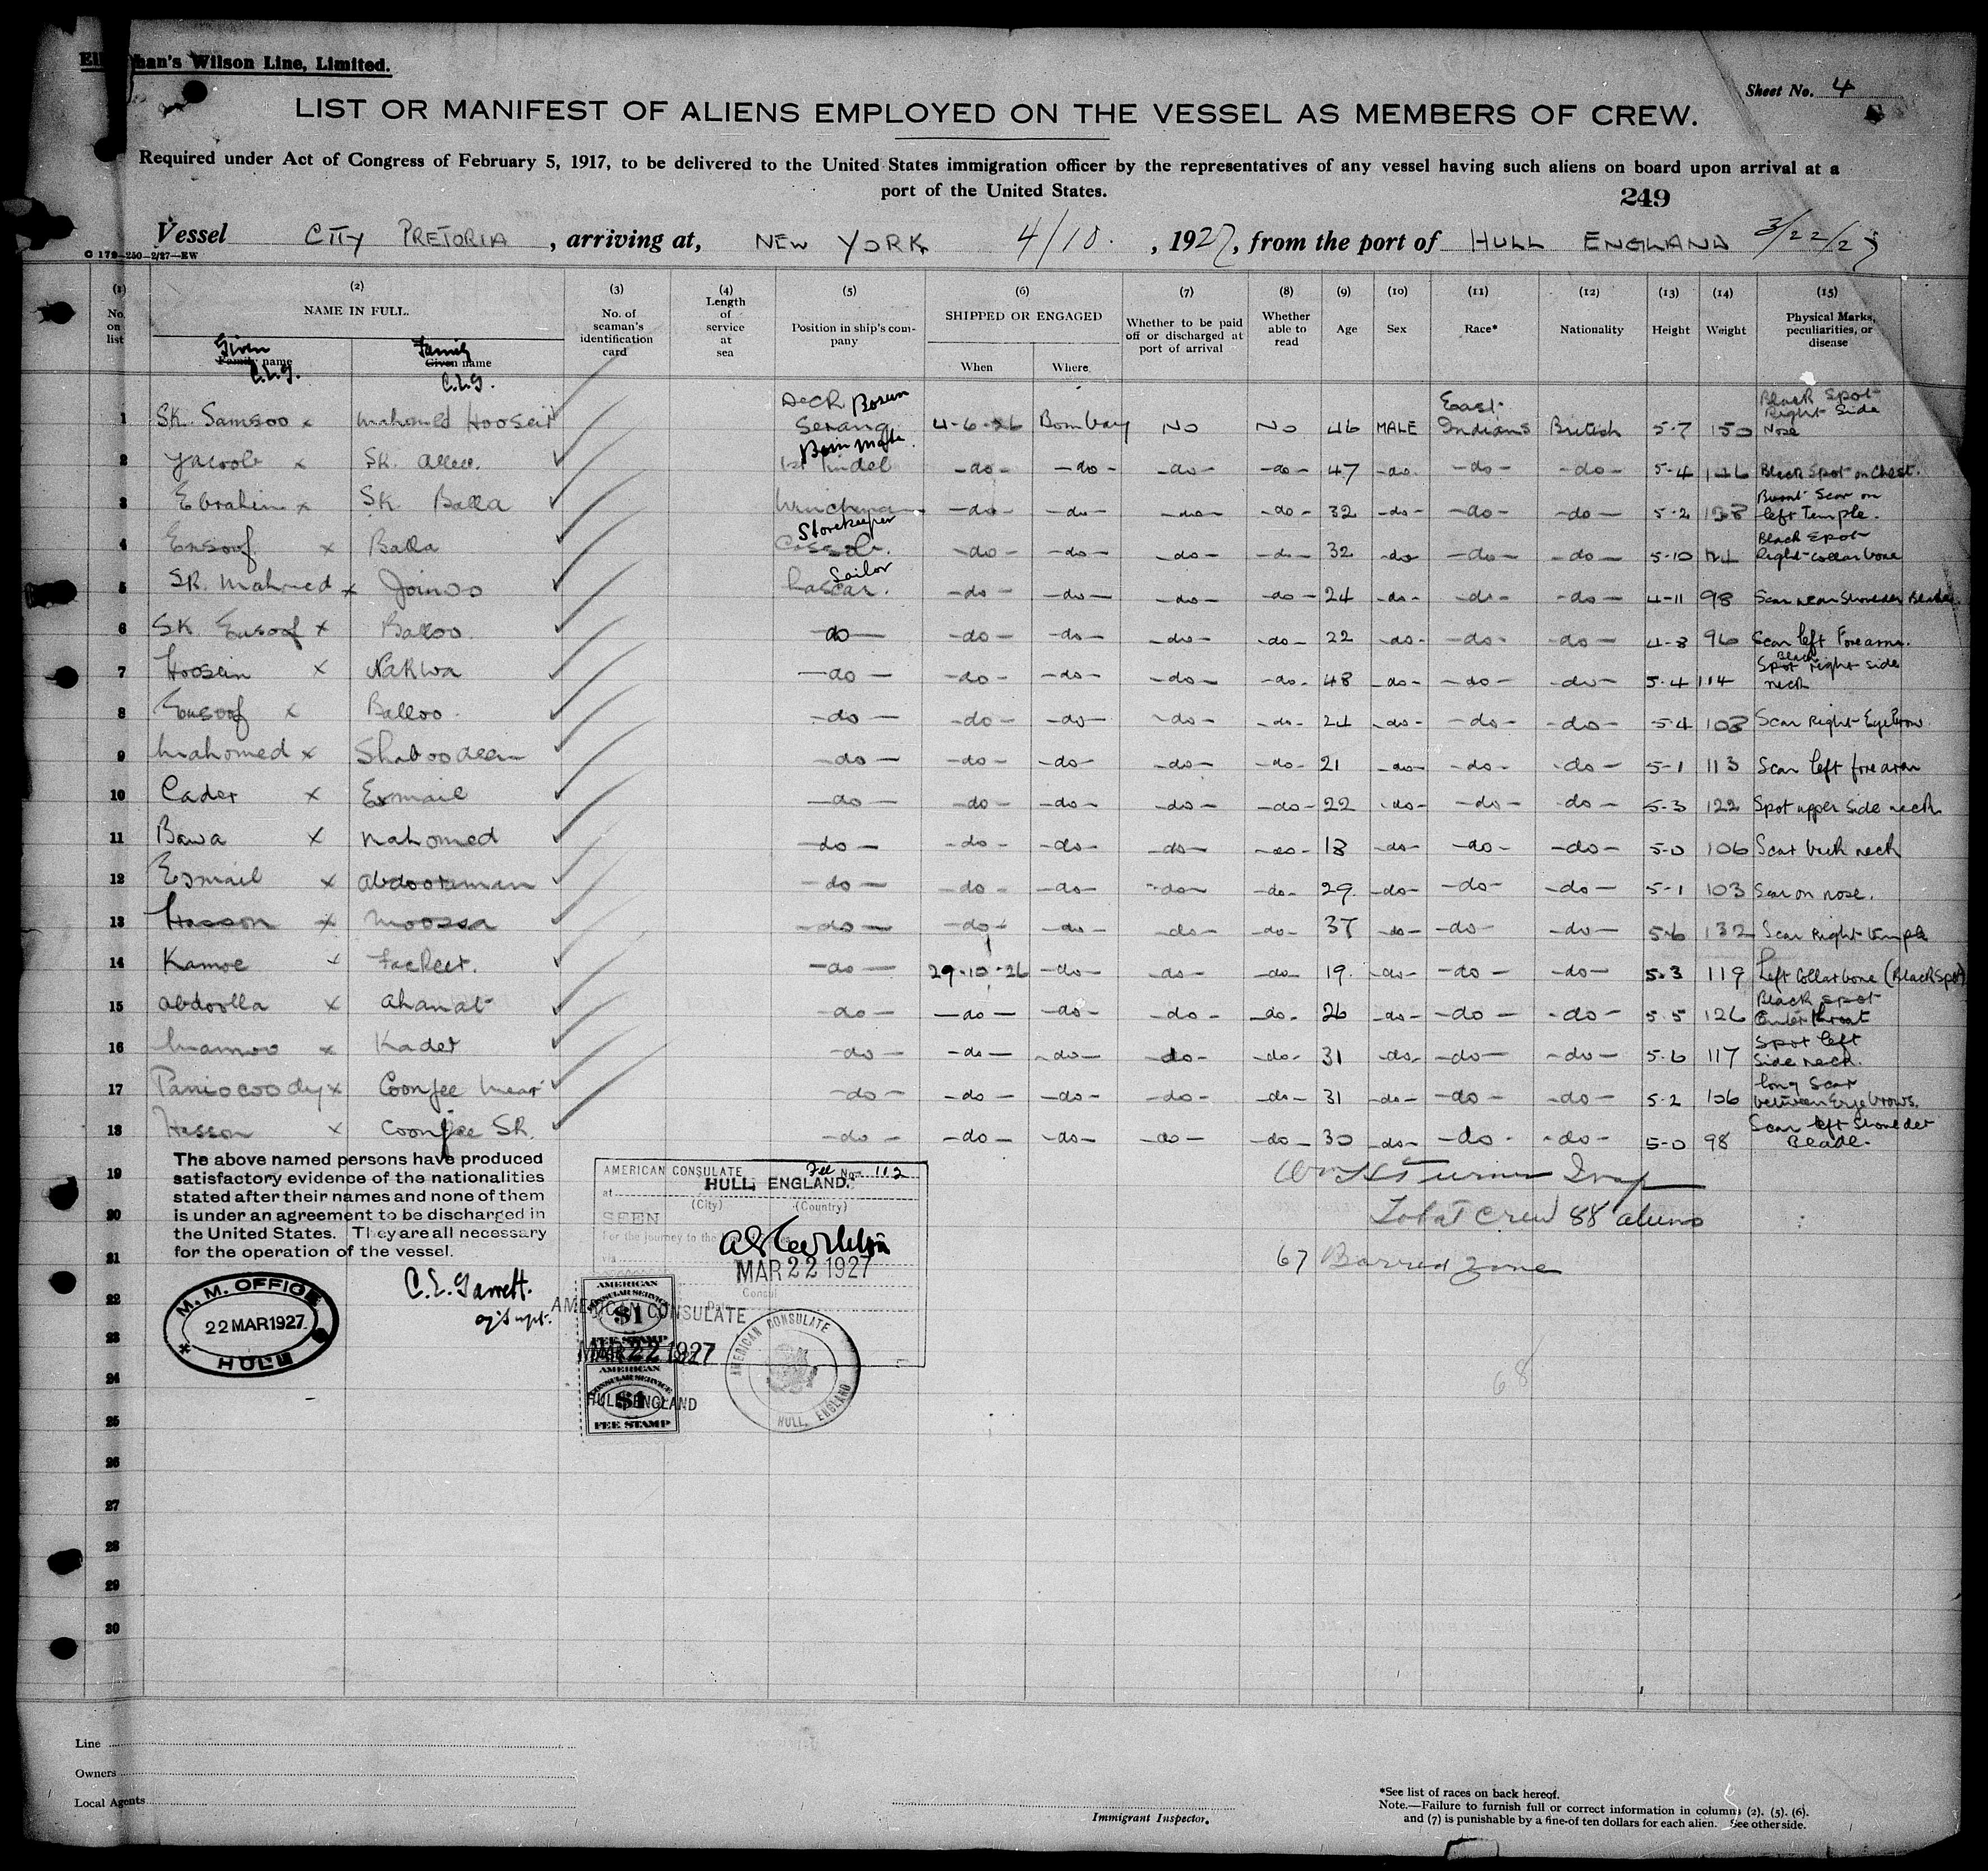 man's Wilson Line, Limited.
Sheet No. 4
LIST OR MANIFEST OF ALIENS EMPLOYED ON THE VESSEL AS MEMBERS OF CREW.
Required under Act of Congress of February 5, 1917, to be delivered to the United States immigration officer by the representatives of any vessel having such aliens on board upon arrival at a
port of the United States.
249
Vessel CITY PRETORIA, arriving at, NEW YORK 4/10, 1927, from the port of HULL ENGLAND 3/22/27
C 179-250-2/27-EW
(1) No. on list (2) NAME IN FULL. Given Family name C.E.G. Family Given name C.E.G. (3) No. of seaman's identification card (4) Length of service at sea (5) Position in ship's company (6) SHIPPED OR ENGAGED When Where (7) Whether to be paid off or discharged at port of arrival (8) Whether able to read (9) Age (10) Sex (11) Race* (12) Nationality (13) Height (14) Weight (15) Physical Marks, peculiarities, or disease
1 SK. Samsoo x Mahomed Hoosein Deck Bosun Serang 4-6-26 Bombay No No 46 MALE East Indians British 5-7 150 Black Spot Right Side Nose
2 Yacoob x SK. Allee. Bosn Mate 1st Tindel -do- -do- -do- -do- 47 -do- -do- -do- 5-4 Black Spot on Chest.
3 Ebrahim x SK. Balla Winchman -do- -do- -do- -do- 32 -do- -do- -do- 5-2 138 Burnt Scar on left Temple.
4 Eusoof x Balla Storekeeper Cassab. -do- -do- -do- -do- 32 -do- -do- -do- 5-10 Black Spot Right Collar bone
5 SK. Mahmed x Joinoo Sailor Lascar. -do- -do- -do- -do- 24 -do- -do- -do- 4-11 98 Scar near Shoulder Blade.
6 SK. Eusoof x Balloo. -do- -do- -do- -do- -do- 22 -do- -do- -do- 4-8 96 Scar left Forearm.
7 Hoosein x Nakwa -do- -do- -do- -do- -do- 48 -do- -do- -do- 5-4 114 Black Spot right side neck
8 Eusoof x Balloo. -do- -do- -do- -do- -do- 24 -do- -do- -do- 5-4 108 Scar Right Eye Brow.
9 Mahomed x Shaboodeen -do- -do- -do- -do- -do- 21 -do- -do- -do- 5-1 113 Scar left forearm
10 Cader x Esmail -do- -do- -do- -do- -do- 22 -do- -do- -do- 5-3 122 Spot upper side neck
11 Bawa x Mahomed -do- -do- -do- -do- -do- 18 -do- -do- -do- 5-0 106 Scar back neck
12 Esmail x Abdooraman -do- -do- -do- -do- -do- 29 -do- -do- -do- 5-1 103 Scar on nose.
13 Hasson x Moossa -do- -do- -do- -do- -do- 37 -do- -do- -do- 5-6 132 Scar Right temple
14 Kamoe x Fackeer. -do- 29-10-26 -do- -do- -do- 19 -do- -do- -do- 5-3 119 Left Collar bone (Black Spot)
15 Abdoolla x Ahamat -do- -do- -do- -do- -do- 26 -do- -do- -do- 5-5 126 Black spot throat
16 x Kader -do- -do- -do- -do- -do- 31 -do- -do- -do- 5-6 117 Spot left Side neck.
17 Paniocoody x Coonjee -do- -do- -do- -do- -do- 31 -do- -do- -do- 5-2 106 long Scar between Eye brows.
18 Hasson x Coonjee SK. -do- -do- -do- -do- -do- 30 -do- -do- -do- 5-0 98 Scar left Shoulder Blade.
19
20
21
22
23
24
25
26
27
28
29
30
The above named persons have produced
satisfactory evidence of the nationalities
stated after their names and none of them
is under an agreement to be discharged in
the United States. They are all necessary
for the operation of the vessel.
C.E. Garrett.
M. M. OFFICE
22 MAR 1927
HULL
AMERICAN CONSULATE Fee No. 112
at HULL, ENGLAND.
(City) (Country)
SEEN
For the journey to the
via
MAR 22 1927
Consul
AMERICAN CONSULAR SERVICE $1 FEE STAMP
AMERICAN CONSULATE
MAR 22 1927
AMERICAN CONSULAR SERVICE $1 FEE STAMP
HULL ENGLAND
AMERICAN CONSULATE HULL, ENGLAND
Turner Insp
Total Crew 88 aliens
67 Barred Zone
68
Line
Owners
Local Agents
Immigrant Inspector.
*See list of races on back hereof.
Note.—Failure to furnish full or correct information in columns (2). (5). (6).
and (7) is punishable by a fine of ten dollars for each alien. See other side.